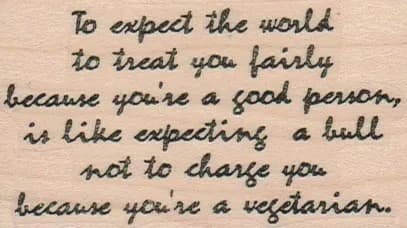 To expect the world
to treat you fairly
because you're a good person,
is like expecting a bull
not to charge you
because you're a vegetarian.